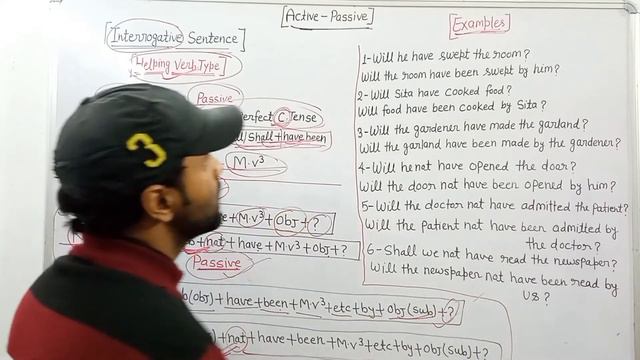 [Active-Passive]
[Interrogative Sentence]
[Helping Verb Type]
Passive
C. Tense
Shall + have been
M.v³
+ M.v³ + Obj + ?
+ nat + have + M.v³ + Obj + ?
Passive
(obj) + have + been + M.v³ + etc + by + Obj (sub) + ?
+ nat + have + been + M.v³ + etc + by + Obj (sub) + ?
[Examples]
1- Will he have swept the room?
Will the room have been swept by him?
2- Will Sita have Cooked food?
Will food have been Cooked by Sita?
3- Will the gardener have made the garland?
Will the garland have been made by the gardener?
4- Will he nat have opened the door?
Will the door nat have been opened by him?
5- Will the doctor nat have admitted the patient?
Will the patient nat have been admitted by
the doctor?
6- Shall we nat have read the newspaper?
Will the newspaper nat have been read by
us?
3